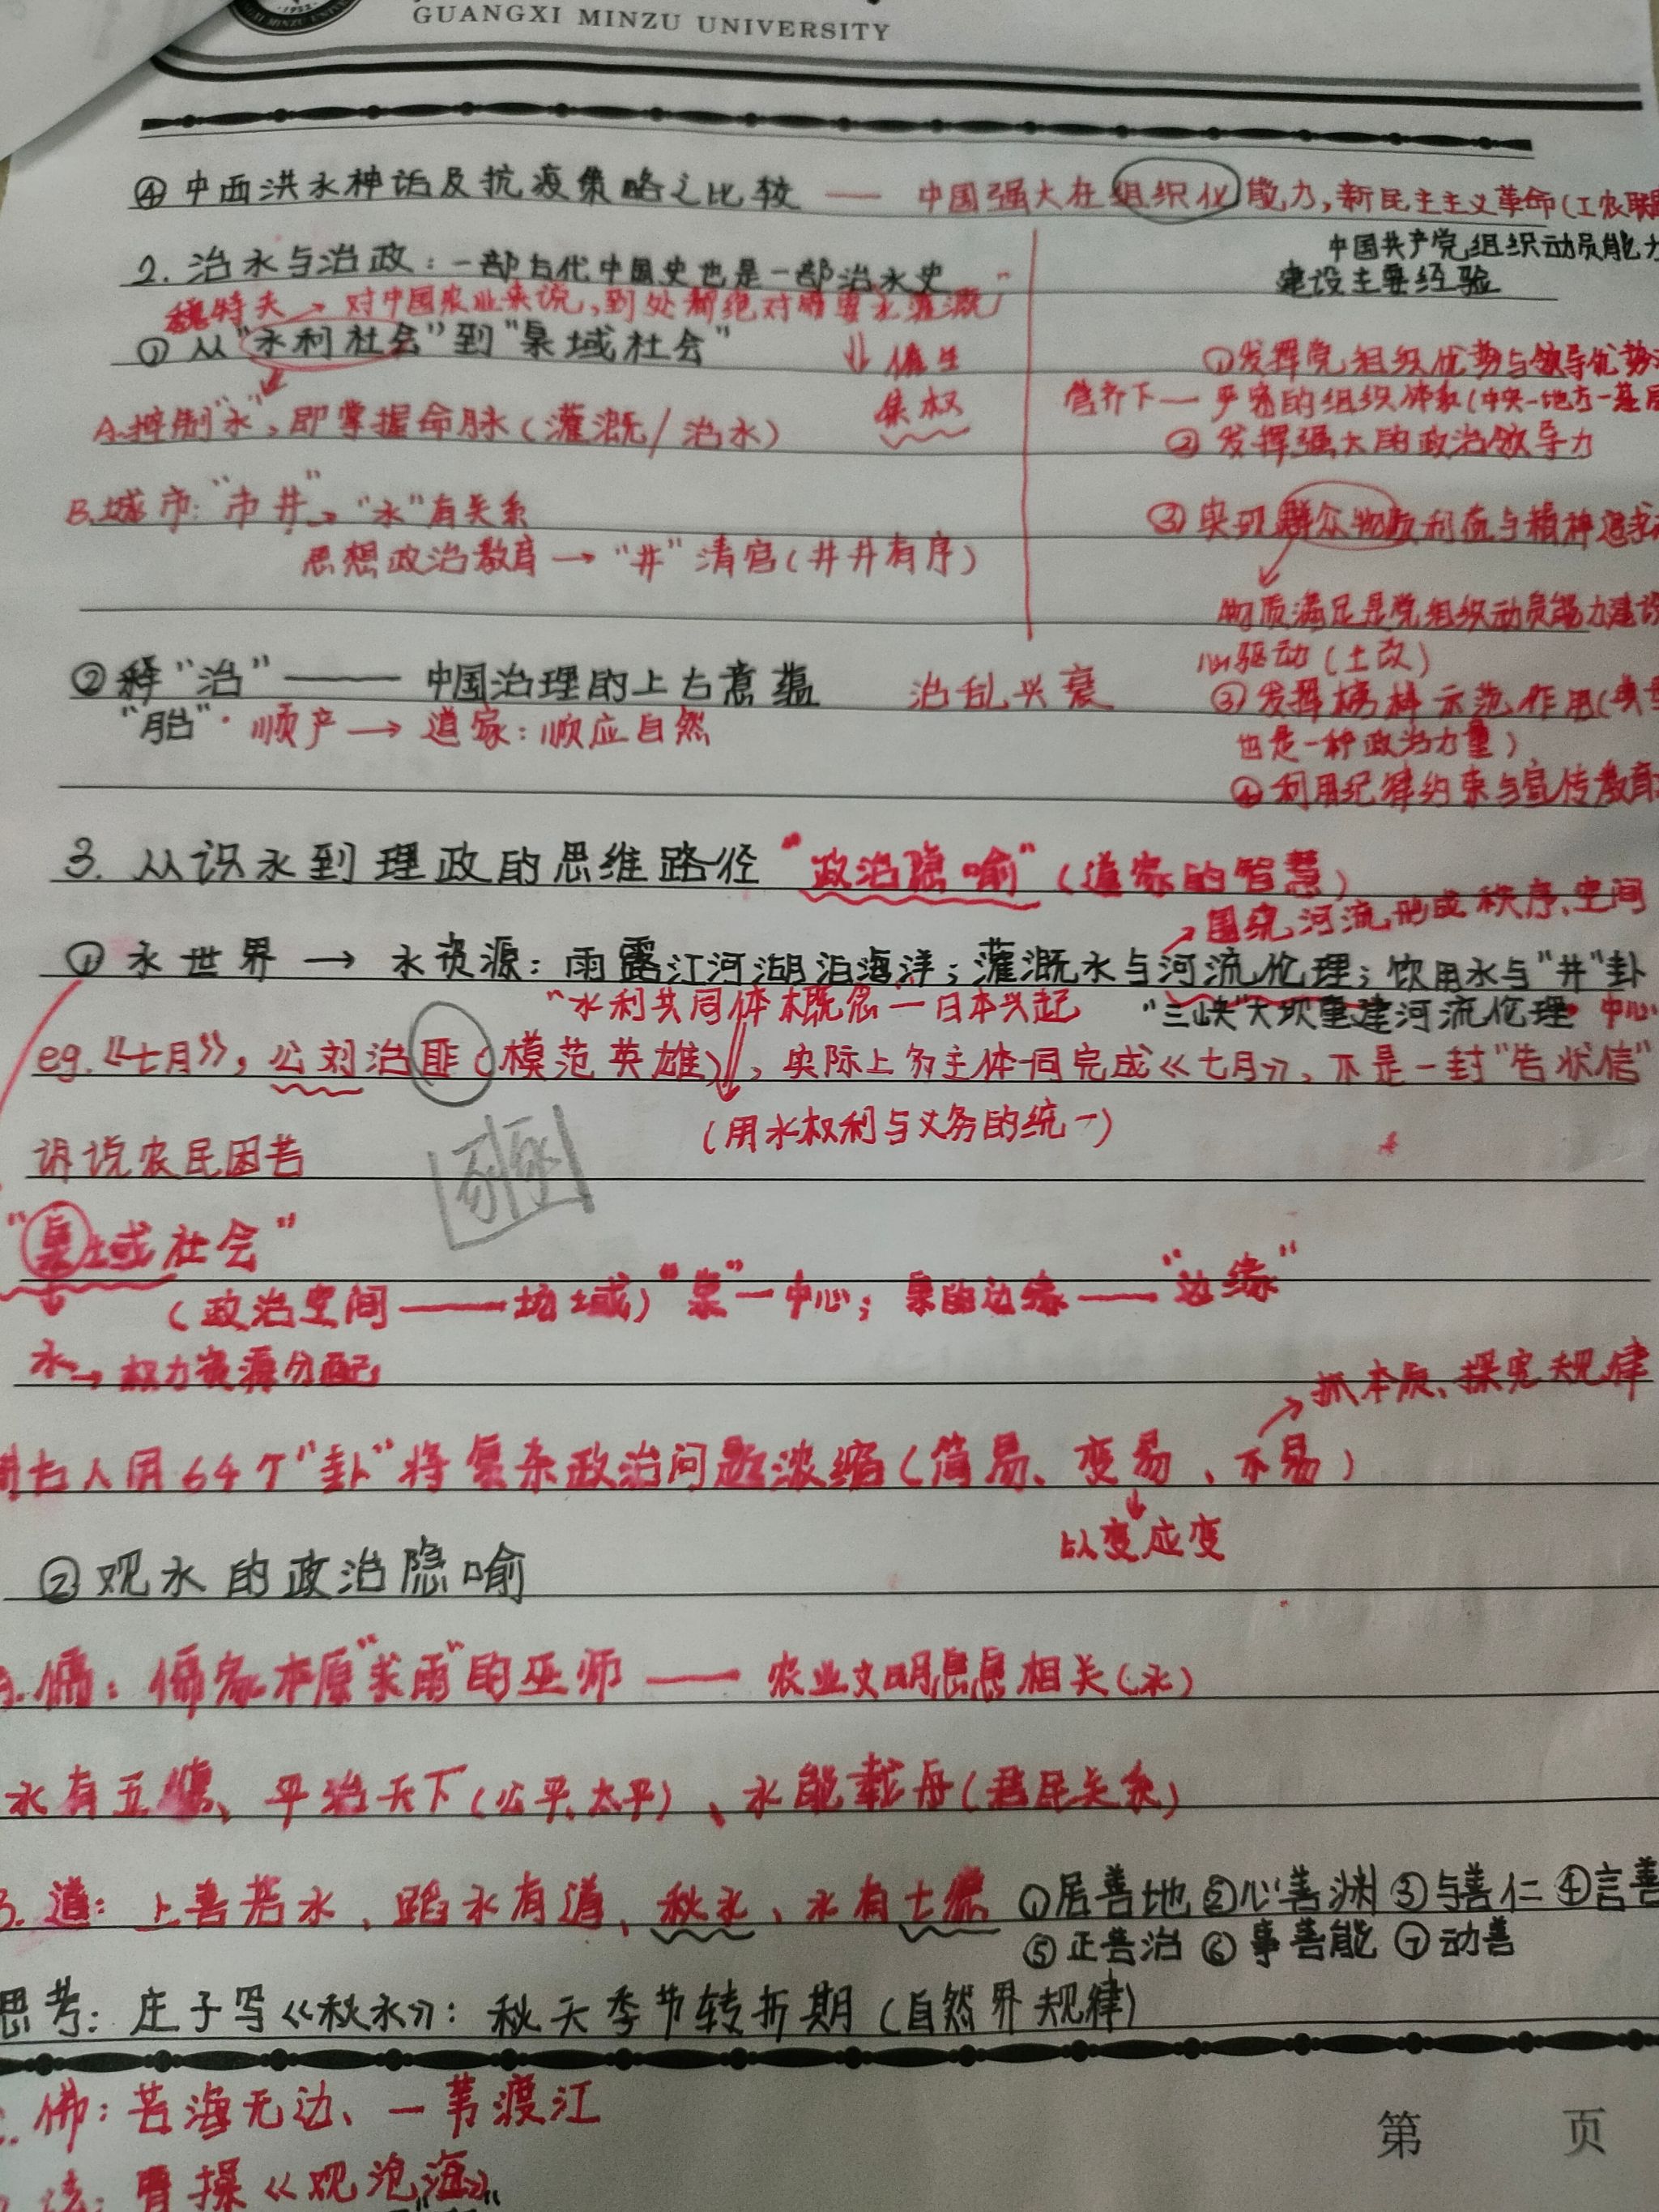 GUANGXI MINZU UNIVERSITY
④ 中西洪水神话及抗疫策略之比较 —— 中国强大在组织化能力,新民主主义革命(工农联
中国共产党组织动员能力
建设主要经验
2. 治水与治政:一部古代中国史也是一部治水史
魏特夫→对中国农业来说,到处都绝对需要水灌溉”
① 从“水利社会”到“泉域社会”
↓催生
集权
A.控制“水”,即掌握命脉(灌溉/治水)
B.城市:“市井”→“水”有关系
思想政治教育→“井”清官(井井有序)
①发挥党组织优势与领导优势
营养下—严密的组织体系(中央-地方-基层
②发挥强大的政治领导力
③实现群众物质利益与精神追求
物质满足是党组织动员能力建设
心驱动(土改)
③发挥榜样示范作用(典型
也是一种政治力量)
④利用纪律约束与宣传教育
②释“治”—— 中国治理的上古意蕴 治乱兴衰
“胎”·顺产→道家:顺应自然
3. 从识水到理政的思维路径 “政治隐喻”(道家的智慧)
→围绕河流形成秩序、空间
① 水世界→水资源:雨露江河湖泊海洋;灌溉水与河流伦理;饮用水与“井”卦
“水利共同体概念—日本兴起 “三峡”大坝重建河流伦理 中心
eg.《七月》,公刘治豳(模范英雄),实际上多主体一同完成《七月》,不是一封“告状信”
(用水权利与义务的统一)
诉说农民困苦
豳
“泉域社会”
(政治空间——场域)“泉”—中心;泉的边缘——“边缘”
水→权力资源分配
→抓本质、探究规律
古人用64个“卦”将复杂政治问题浓缩(简易、变易、不易)
以变应变
②观水的政治隐喻
A.儒:儒家本原“求雨”的巫师——农业文明息息相关(水)
水有五德、平治天下(公平、太平)、水能载舟(君民关系)
B.道:上善若水、蹈水有道、秋水、水有七德 ①居善地②心善渊③与善仁④言善
⑤正善治⑥事善能⑦动善
思考:庄子写《秋水》:秋天季节转折期(自然界规律)
佛:苦海无边、一苇渡江
第 页
曹操《观沧海》